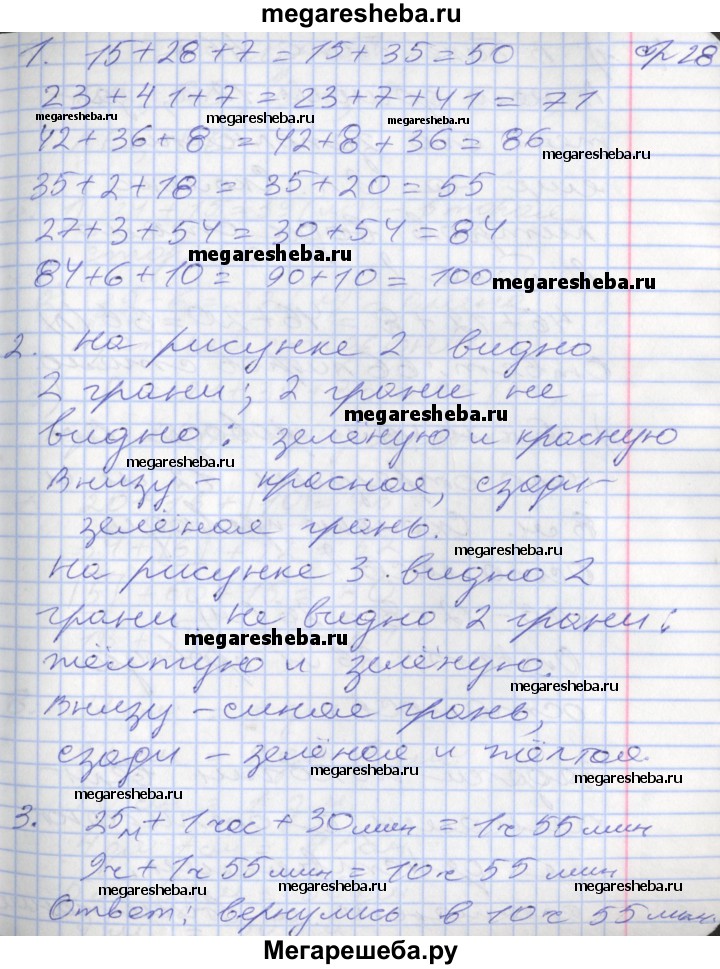 megaresheba.ru
1. 15+28+7=15+35=50 стр 28
23+41+7=23+7+41=71
megaresheba.ru megaresheba.ru megaresheba.ru
42+36+8=42+8+36=86
megaresheba.ru
35+2+18=35+20=55
27+3+54=30+54=84
megaresheba.ru
84+6+10=90+10=100
megaresheba.ru
2. На рисунке 2 видно
2 грани; 2 грани не
megaresheba.ru
видно: зелёную и красную
megaresheba.ru
Внизу – красная, сзади –
зелёная грань.
megaresheba.ru
На рисунке 3 видно 2
грани, не видно 2 грани:
megaresheba.ru
жёлтую и зелёную.
megaresheba.ru
Внизу – синяя грань,
сзади – зелёная и жёлтая.
megaresheba.ru megaresheba.ru
megaresheba.ru
3. 25м + 1 час + 30 мин = 1ч 55 мин
9ч + 1ч 55 мин = 10ч 55 мин
megaresheba.ru megaresheba.ru megaresheba.ru
Ответ: вернулись в 10ч 55 мин.
Мегарешеба.ру